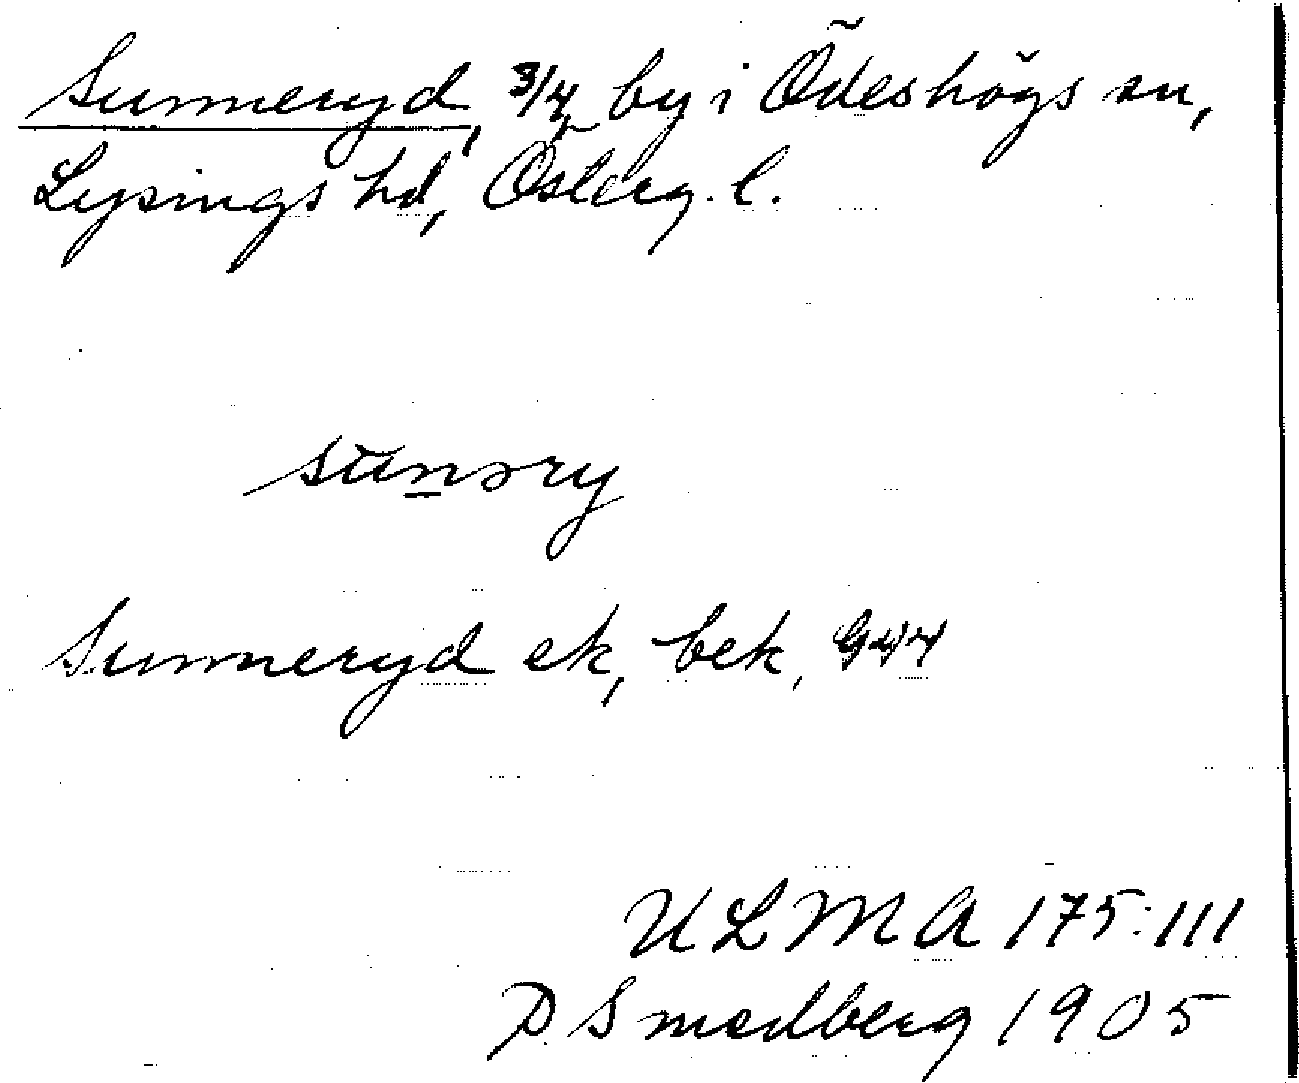 Sunneryd, 3/4 by i Ödeshögs sn,
Lysings hd, Österg. l.
sunəry
Sunneryd ek, bek, G44
ULMA 175:111
P Smedberg 1905